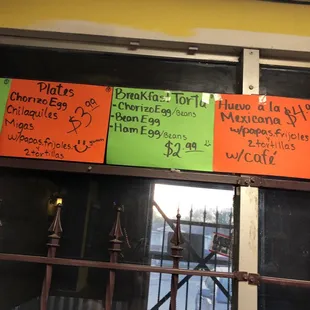 Plates
Chorizo Egg
Chilaquiles
Migas
$3.99
w/papas, frijoles
2 tortillas
Breakfast Torta
-Chorizo Egg/Beans
-Bean Egg
-Ham Egg/Beans
$2.99
Huevo a la
Mexicana
w/papas, frijoles
2 tortillas
w/café